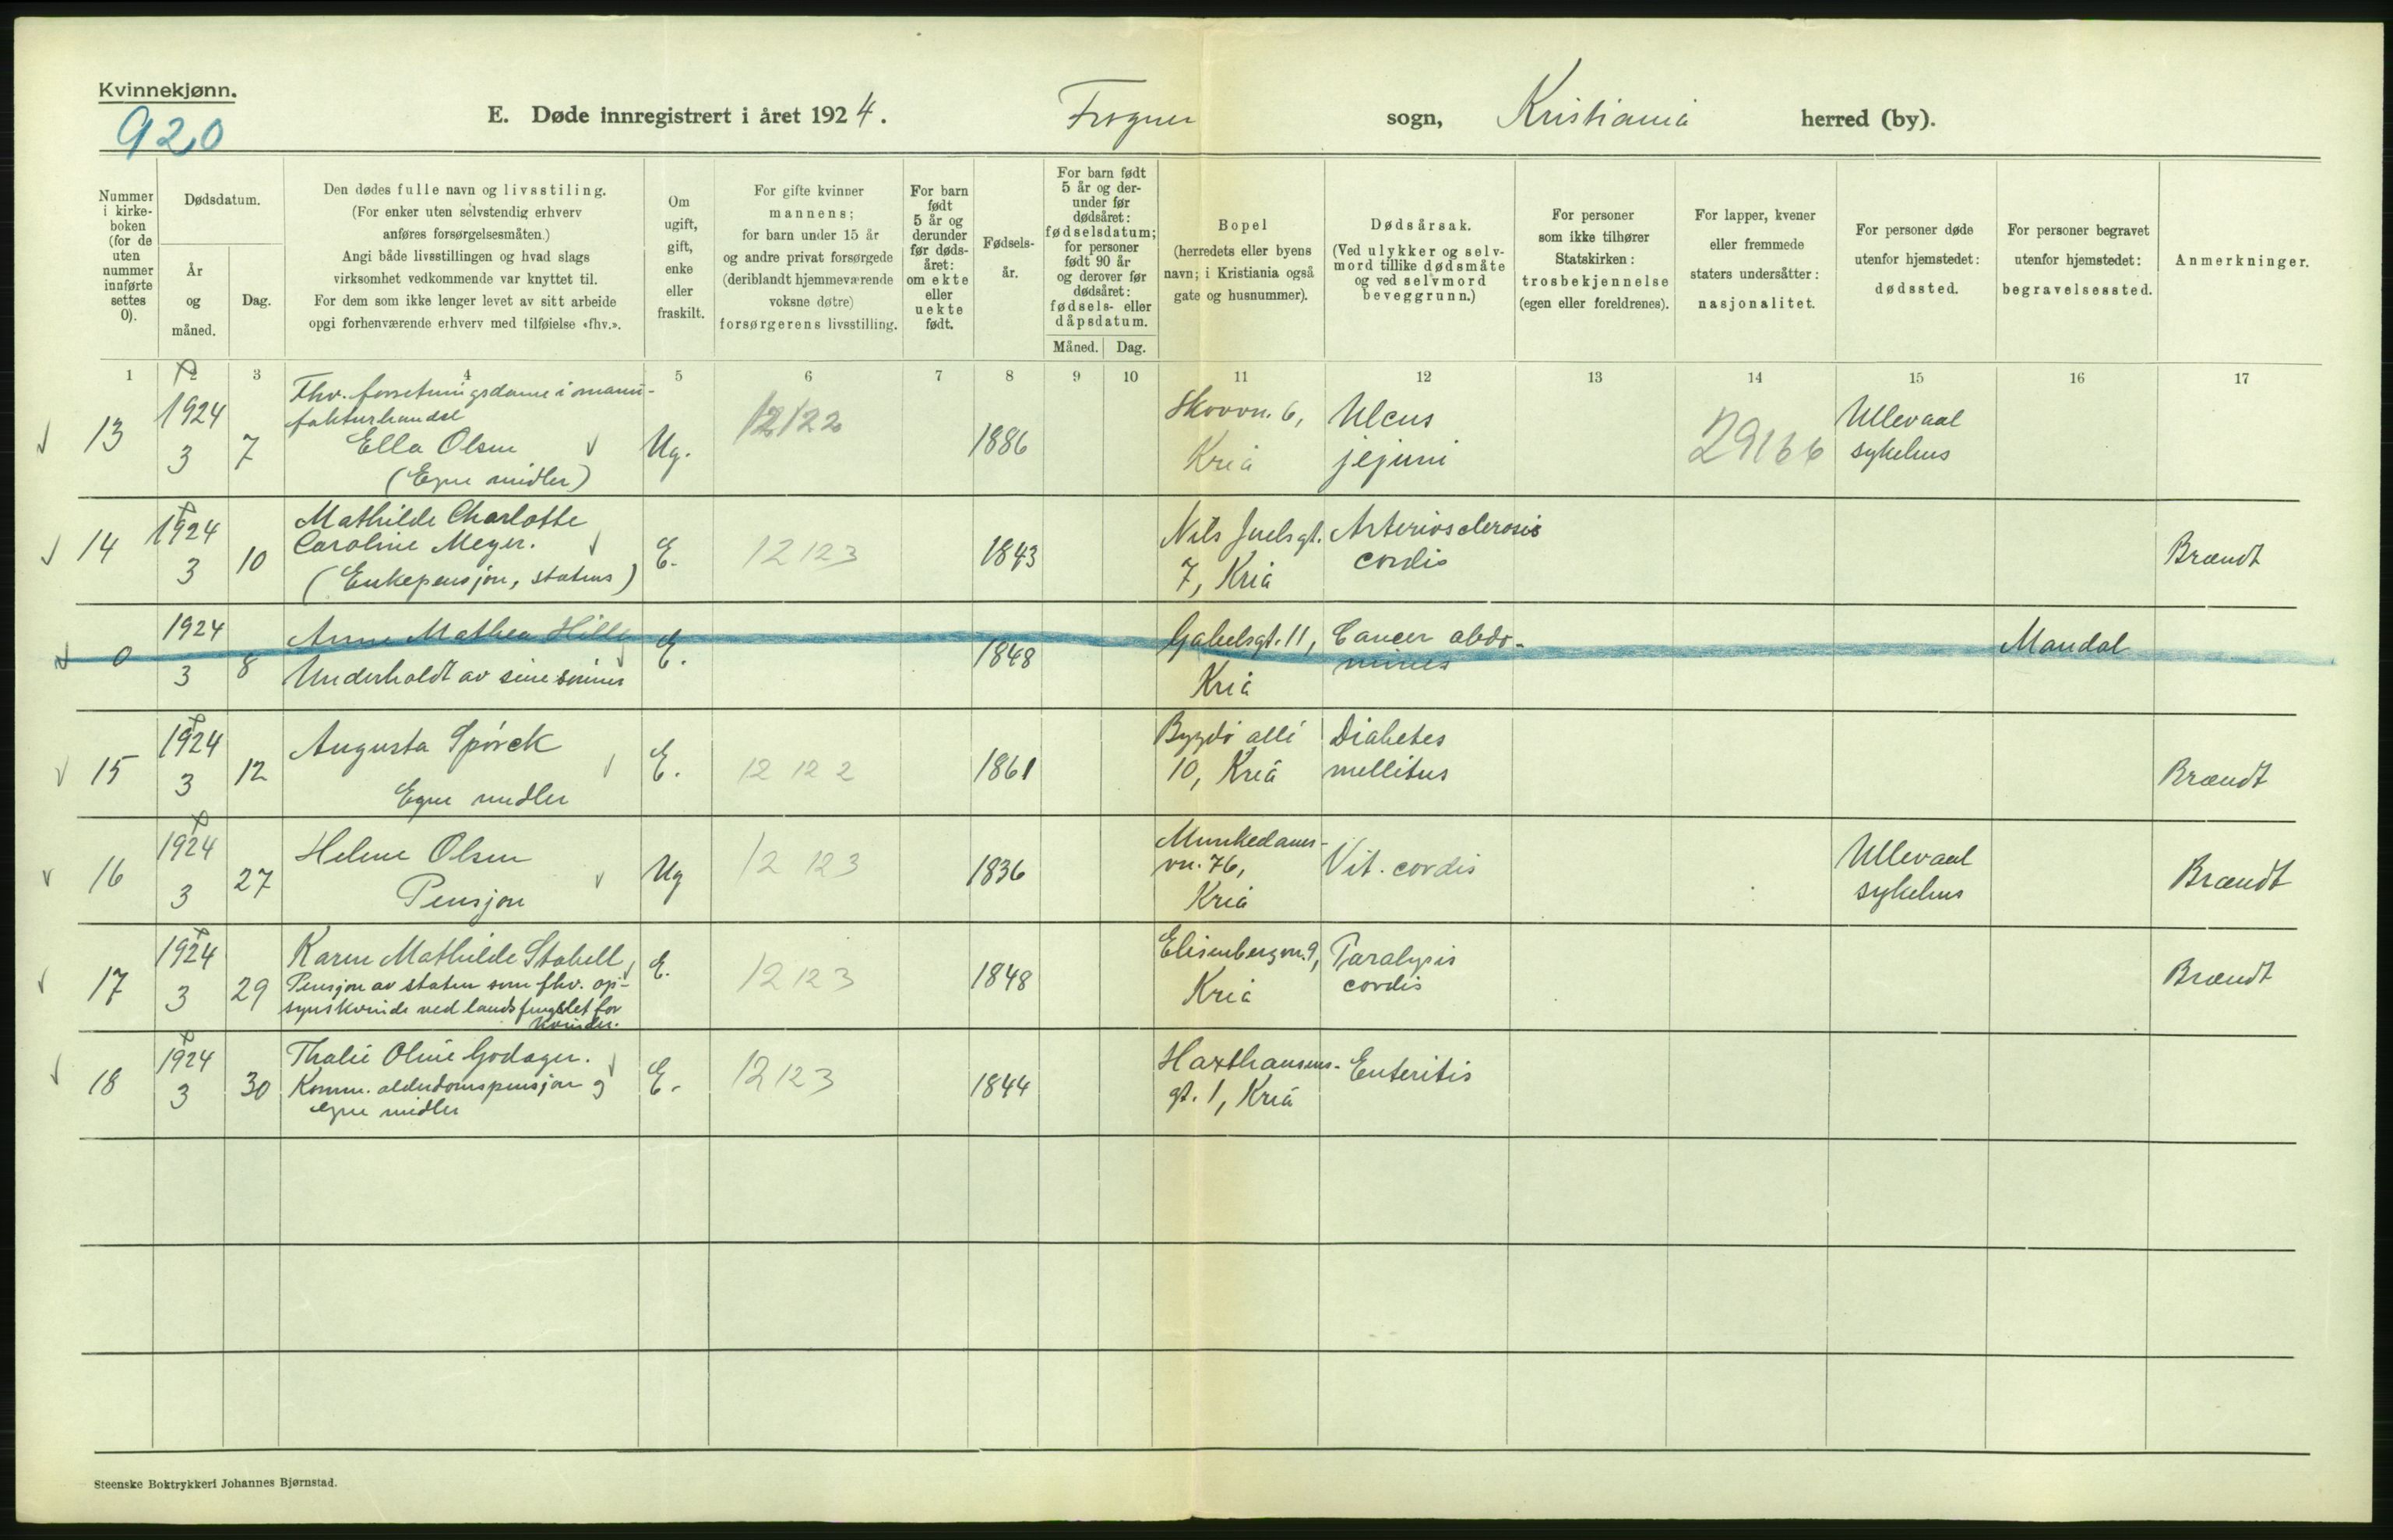 Kvinnekjønn.
920
E. Døde innregistrert i året 1924. Frogner sogn, Kristiania herred (by).
Nummer i kirkeboken (for de uten nummer innførte settes 0).
Dødsdatum.
År og måned.
Dag.
Den dødes fulle navn og livsstiling.
(For enker uten selvstendig erhverv
anføres forsørgelsesmåten.)
Angi både livsstillingen og hvad slags
virksomhet vedkommende var knyttet til.
For dem som ikke lenger levet av sitt arbeide
opgi forhenværende erhverv med tilføielse «fhv.».
Om
ugift,
gift,
enke
eller
fraskilt.
For gifte kvinner
mannens;
for barn under 15 år
og andre privat forsørgede
(deriblandt hjemmeværende
voksne døtre)
forsørgerens livsstilling.
For barn
født
5 år og
derunder
før døds-
året:
om ekte
eller
uekte
født.
Fødsels-
år.
For barn født
5 år og der-
under før
dødsåret:
fødselsdatum;
for personer
født 90 år
og derover før
dødsåret:
fødsels- eller
dåpsdatum.
Måned. Dag.
Bopel
(herredets eller byens
navn; i Kristiania også
gate og husnummer).
Dødsårsak.
(Ved ulykker og selv-
mord tillike dødsmåte
og ved selvmord
beveggrunn.)
For personer
som ikke tilhører
Statskirken:
trosbekjennelse
(egen eller foreldrenes).
For lapper, kvener
eller fremmede
staters undersåtter:
nasjonalitet.
For personer døde
utenfor hjemstedet:
dødssted.
For personer begravet
utenfor hjemstedet:
begravelsessted.
Anmerkninger.
1 2 3 4 5 6 7 8 9 10 11 12 13 14 15 16 17
13 1924 3 7
Fhv. forretningsdame i manu-
fakturhandel
Ella Olsen
(Egne midler)
Ug. 12122 1886
Skovvn. 6,
Kria
Ulcus
jejuni
29166
Ullevaal
sykehus
14 1924 3 10
Mathilde Charlotte
Caroline Meyer.
(Enkepensjon, statens)
E. 12123 1843
Nils Juelsgt.
7, Kria
Arteriosclerosis
cordis
Brændt
0 1924 3 8
Anne Mathea Hille
Underholdt av sine sønner
E. 1848
Gabelsgt. 11,
Kria
Cancer abdo-
minis
Mandal
15 1924 3 12
Augusta Spörck
Egne midler
E. 12 12 2 1861
Bygdö allé
10, Kria
Diabetes
mellitus
Brændt
16 1924 3 27
Helene Olsen
Pensjon
Ug 12 123 1836
Munkedams-
vn. 76,
Kria
Vit. cordis
Ullevaal
sykehus
Brændt
17 1924 3 29
Karen Mathilde Stabell,
Pensjon av staten som fhv. op-
synskvinde ved landsfengslet for
kvinder.
E. 12 12 3 1848
Elisenbergvn. 9,
Kria
Paralysis
cordis
Brændt
18 1924 3 30
Thalie Oline Godager.
Komm. alderdomspensjon og
egne midler
E. 12 123 1844
Haxthausens-
gt. 1, Kria
Enteritis
Steenske Boktrykkeri Johannes Bjørnstad.